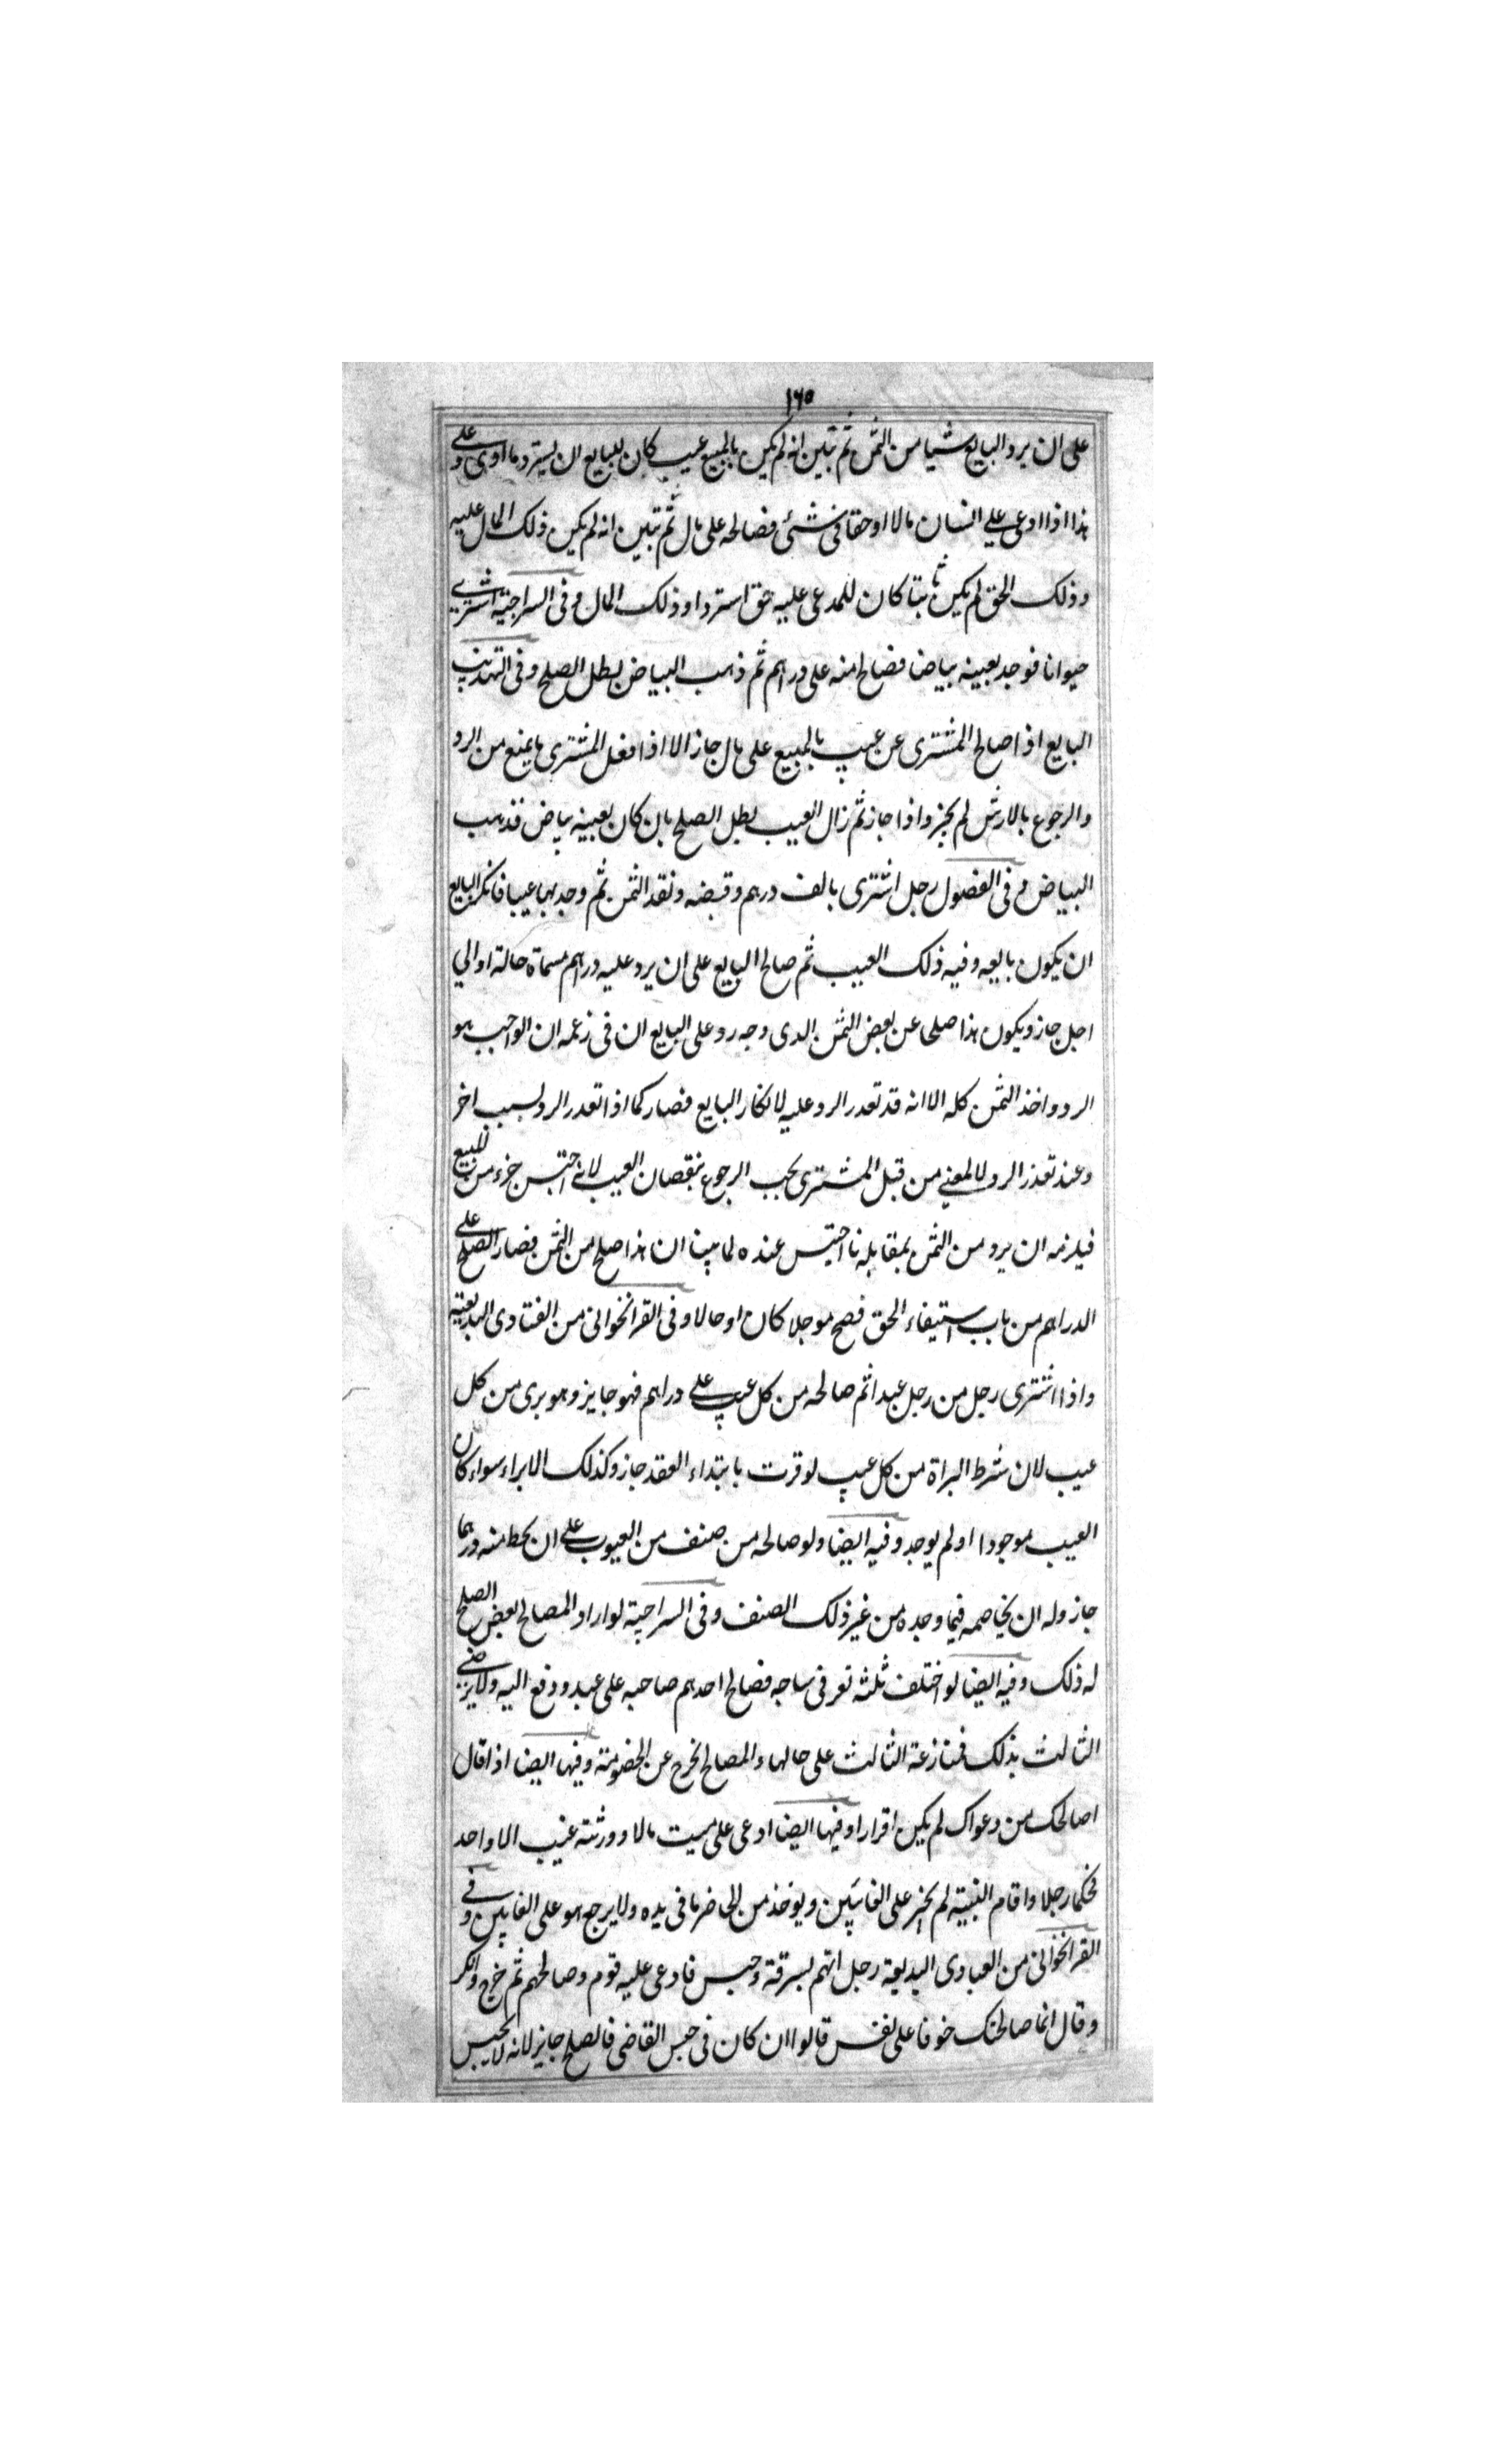 ١٦٥
على ان يرد البايع شيا من الثمن ثم تبين انه لم يكن بالمبيع عيب كان للبايع ان يسترد ما ادى وعلى
هذا اذا ادعى على انسان مالا او حقا فى شئ فصالحه على مال ثم تبين انه لم يكن ذلك المال عليه
وذلك الحق لم يكن ثابتا كان للمدعى عليه حق استرداد ذلك المال وفى السراجية اشترى
حيوانا فوجد بعينه بياضا فصالح منه على دراهم ثم ذهب البياض بطل الصلح وفى التهذيب
البايع اذا صالح المشترى عن عيب بالمبيع على مال جاز الا اذا فعل المشترى ما يمنع من الرد
والرجوع بالارش لم يجز واذا جاز ثم زال العيب بطل الصلح بان كان بعينه بياض فذهب
البياض وفى الفصول رجل اشترى بالف درهم وقبضه ونقد الثمن ثم وجد بها عيبا فانكر البايع
ان يكون بايعه وفيه ذلك العيب ثم صالح البايع على ان يرد عليه دراهم مسماة حالة او الي
اجل جاز ويكون هذا صلحا عن بعض الثمن الدى وجه رد على البايع ان فى زعمه ان الواجب هو
الرد واخذ الثمن كله الا انه قد تعدر الرد عليه لانكار البايع فصار كما اذا تعدر الرد لسبب اخر
وعند تعذر الرد لا لمعنى من قبل المشترى يجب الرجوع بنقصان العيب لانه احتبس جزء من المبيع
فيلزمه ان يرد من الثمن بمقابلة ما احتبس عنده لما بينا ان هذا صلح من الثمن فصار الصلح على
الدراهم من باب استيفاء الحق فصح موجلا كان او حالا وفى القراخوانى من الفتاوى البديعية
واذا اشترى رجل من رجل عبدا ثم صالحه من كل عيب على دراهم فهو جايز وهو برى من كل
عيب لان شرط البراة من كل عيب لو قرت بابتداء العقد جاز وكذلك الابراء سواء كان
العيب موجودا او لم يوجد وفيه ايضا ولو صالحه من صنف من العيوب على ان يحط منه درهما
جاز وله ان يخاصمه فيما وجده من غير ذلك الصنف وفى السراجية لو اراد المصالح بعض الصلح
له ذلك وفيه ايضا لو اختلف ثلثه نفر فى ساجه فصالح احدهم صاحبه على عبد ودفع اليه ولا يرضى
الثالث بذلك فمنازعة الثالث على حالها والمصالح لخرج عن الخصومة وفيها ايضا اذا قال
اصالحك من دعواك لم يكن اقرارا وفيها ايضا ادعى على ميت مالا وورثته غيب الا واحد
فحكما رجلا واقام البينة لم يجز على الغايبين ويوخذ من الحاضر ما فى يده ولا يرجع هو على الغايبين وفى
القراخوانى من العباوى البديعية رجل اتهم بسرقة وحبس فادعى عليه قوم وصالحهم ثم خرج وانكر
وقال انما صالحتك خوفا على نفسى قالوا ان كان فى حبس القاضى فالصلح جايز لانه لا يحبس